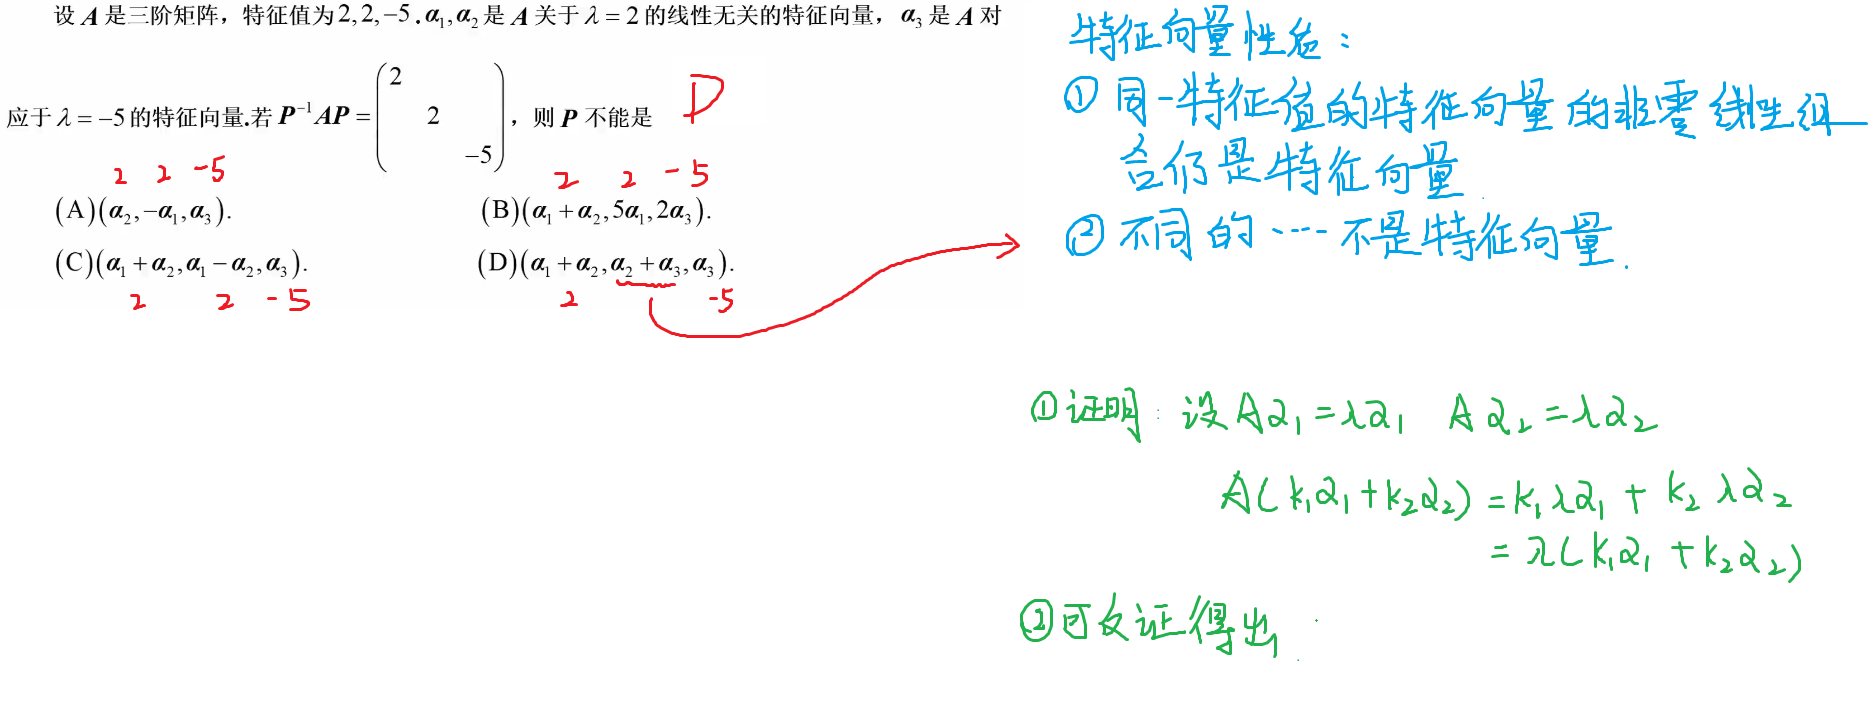 设 A 是三阶矩阵，特征值为 2, 2, −5 . α₁, α₂ 是 A 关于 λ = 2 的线性无关的特征向量， α₃ 是 A 对
2
应于 λ = −5 的特征向量.若 P⁻¹AP = 2 ，则 P 不能是 D
−5
2 2 -5 2 2 -5
(A)(α₂, −α₁, α₃). (B)(α₁ + α₂, 5α₁, 2α₃).
(C)(α₁ + α₂, α₁ − α₂, α₃). (D)(α₁ + α₂, α₂ + α₃, α₃).
2 2 -5 2 -5
特征向量性质：
① 同一特征值的特征向量的非零线性组
合仍是特征向量.
② 不同的 ···· 不是特征向量.
①证明: 设 Aα₁ = λα₁ Aα₂ = λα₂
A(k₁α₁ + k₂α₂) = k₁λα₁ + k₂λα₂
= λ(k₁α₁ + k₂α₂)
②可反证得出.